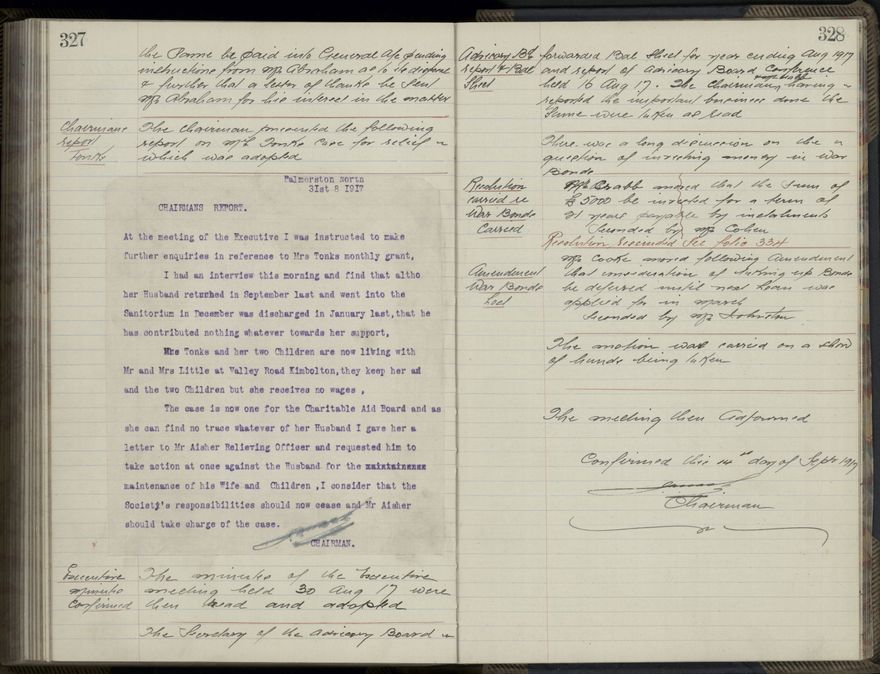 327
the Same be paid into General A/c pending
instructions from Mr Abraham as to its disposal
& further that a letter of thanks be sent
Mr Abraham for his interest in the matter
Chairmans
report
Tonks
The Chairman presented the following
report on Mrs Tonks Case for relief
which was adopted
Palmerston North
31st 8 1917
CHAIRMANS REPORT.
At the meeting of the Executive I was instructed to make
further enquiries in reference to Mrs Tonks monthly grant,
I had an interview this morning and find that altho
her Husband returned in September last and went into the
Sanitorium in December was discharged in January last,that he
has contributed nothing whatever towards her support,
Mrs Tonks and her two Children are now living with
Mr and Mrs Little at Valley Road Kimbolton,they keep her ad
and the two Children but she receives no wages ,
The case is now one for the Charitable Aid Board and as
she can find no trace whatever of her Husband I gave her a
letter to Mr Aisher Relieving Officer and requested him to
take action at once against the Husband for the
maintenance of his Wife and Children ,I consider that the
Society's responsibilities should now cease and Mr Aisher
should take charge of the case.
CHAIRMAN.
Executive
minutes
Confirmed
The minutes of the Executive
meeting held 30 Aug 17 were
then read and adopted
The Secretary of the Advisory Board
328
Advisory Bd
report & Bal
Sheet
forwarded Bal Sheet for year ending Aug 1917
and report of Advisory Board Conference
held 16 Aug 17. The Chairman having
reported the important business done the
Same were taken as read
There was a long discussion on the
question of investing money in War
Bonds
Resolution
carried re
War Bonds
Carried
Mr Crabb moved that the Sum of
£5000 be invested for a term of
21 years payable by instalments
Seconded by Mr Cohen
Resolution rescinded See folio 334
Amendment
War Bonds
lost
Mr Cooke moved following Amendment
that consideration of taking up Bonds
be deferred until next loan was
applied for in March
Seconded by Mr Johnston
The motion was carried on a show
of hands being taken
The meeting then Adjourned
Confirmed this 14th day of Sept 1917
Chairman